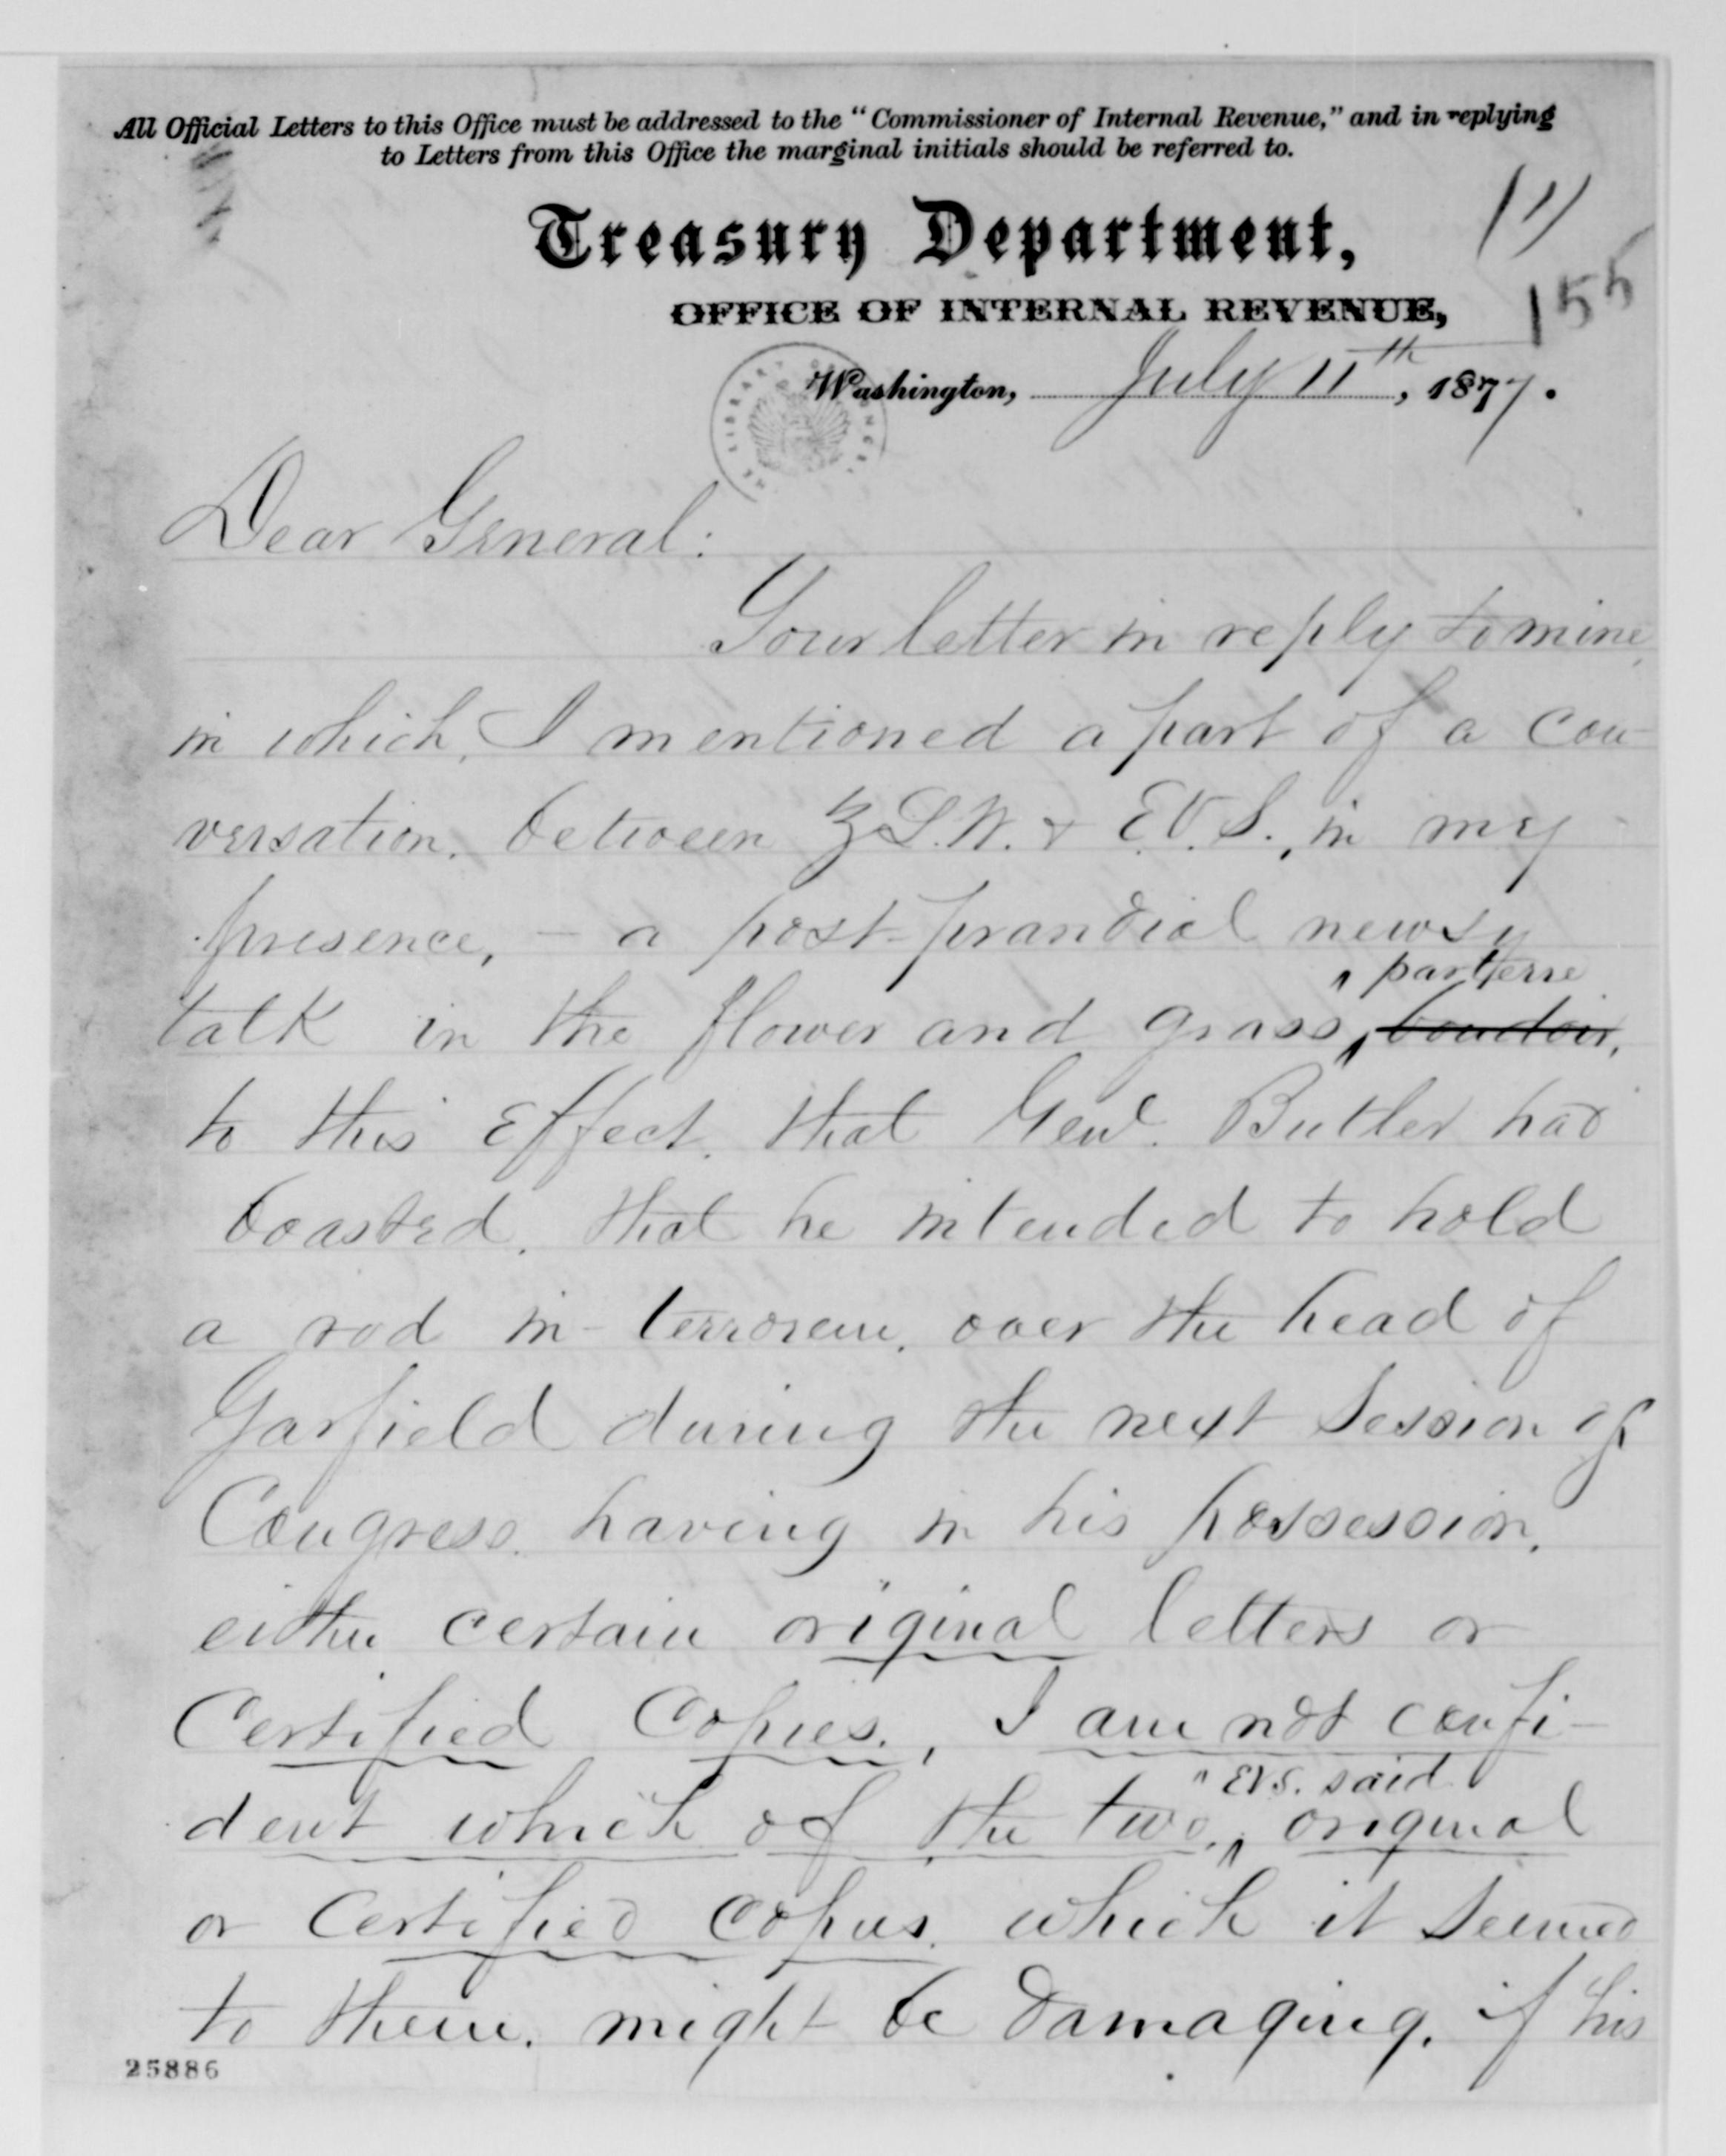 All Official Letters to this Office must be addressed to the "Commissioner of Internal Revenue," and in replying
to Letters from this Office the marginal initials should be referred to.
(1)
Treasury Department,
155
OFFICE OF INTERNAL REVENUE,
Washington, July 11th, 1877.
Dear General:
Your letter in reply to mine,
in which, I mentioned a part of a con-
versation, between Z.L.W. & E.V.S., in my
presence, – a post-prandial newsy
parterre
talk in the flower and grass boudoir,
to this effect, that Genl. Butler had
boasted, that he intended to hold
a rod in-terrorem, over the head of
Garfield during the next Session of
Congress, having in his possession,
either certain original letters or
Certified Copies, I am not confi-
EVS. said
dent which of the two, original
or Certified Copies, which it seemed
to them, might be damaging, if his
25886